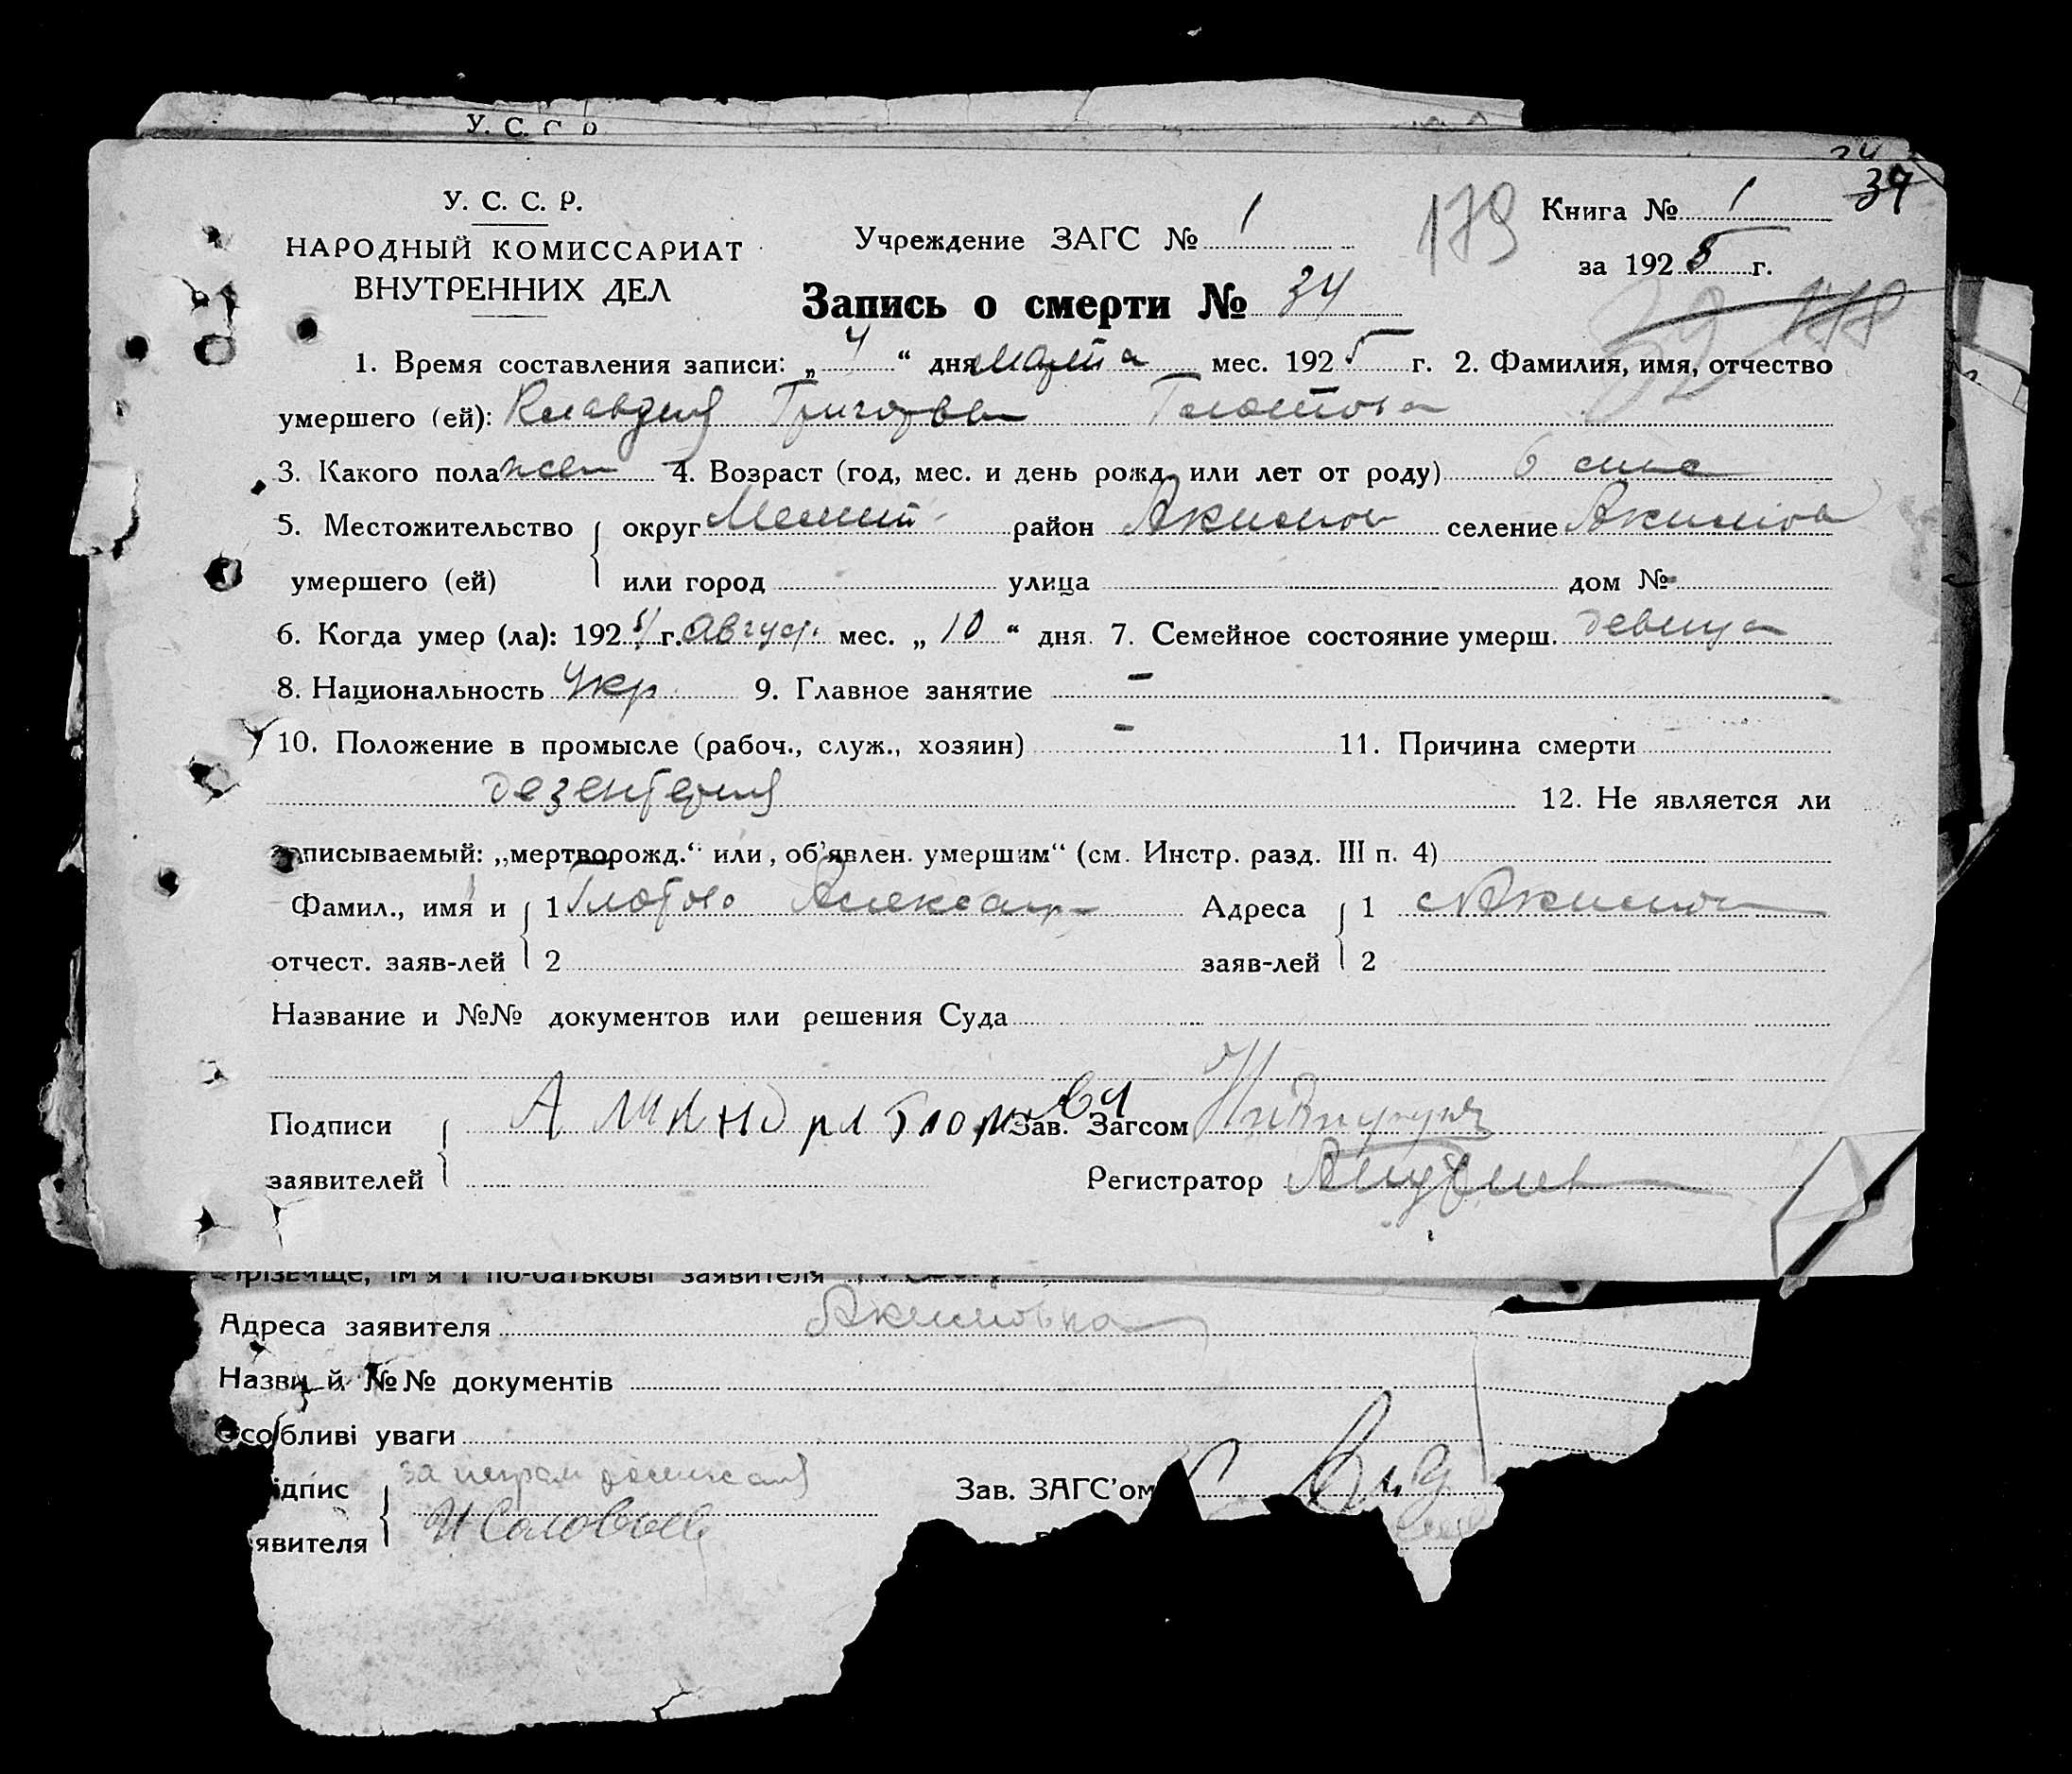 У. С. С. Р.
34
У. С. С. Р.
НАРОДНЫЙ КОМИССАРИАТ
ВНУТРЕННИХ ДЕЛ
Учреждение ЗАГС № 1
179
Книга № 1
за 1925 г.
Запись о смерти № 34
1. Время составления записи: „4“ дня марта мес. 1925 г. 2. Фамилия, имя, отчество
умершего (ей): Клавдия Григорьев Глотова
3. Какого пола жен 4. Возраст (год, мес. и день рожд. или лет от роду) 6
5. Местожительство округ Мелит район Акимов селение Акимов
умершего (ей) или город улица дом №
6. Когда умер (ла): 192 г. август. мес. „10“ дня. 7. Семейное состояние умерш. девица
8. Национальность Укр. 9. Главное занятие -
10. Положение в промысле (рабоч., служ., хозяин) - 11. Причина смерти
дезентерия 12. Не является ли
записываемый: „мертворожд.“ или „об'явлен. умершим“ (см. Инстр. разд. III п. 4)
Фамил., имя и 1 Глотова Александр Адреса 1 с Акимов
отчест. заяв-лей 2 заяв-лей 2
Название и №№ документов или решения Суда
Подписи Зав. Загсом
заявителей Регистратор
Прізвище, ім'я і по-батькові заявителя
Адреса заявителя Акимовка
Назви й №№ документів
Особливі уваги
Підпис за неграм Зав. ЗАГС'ом
явителя И Соловьев